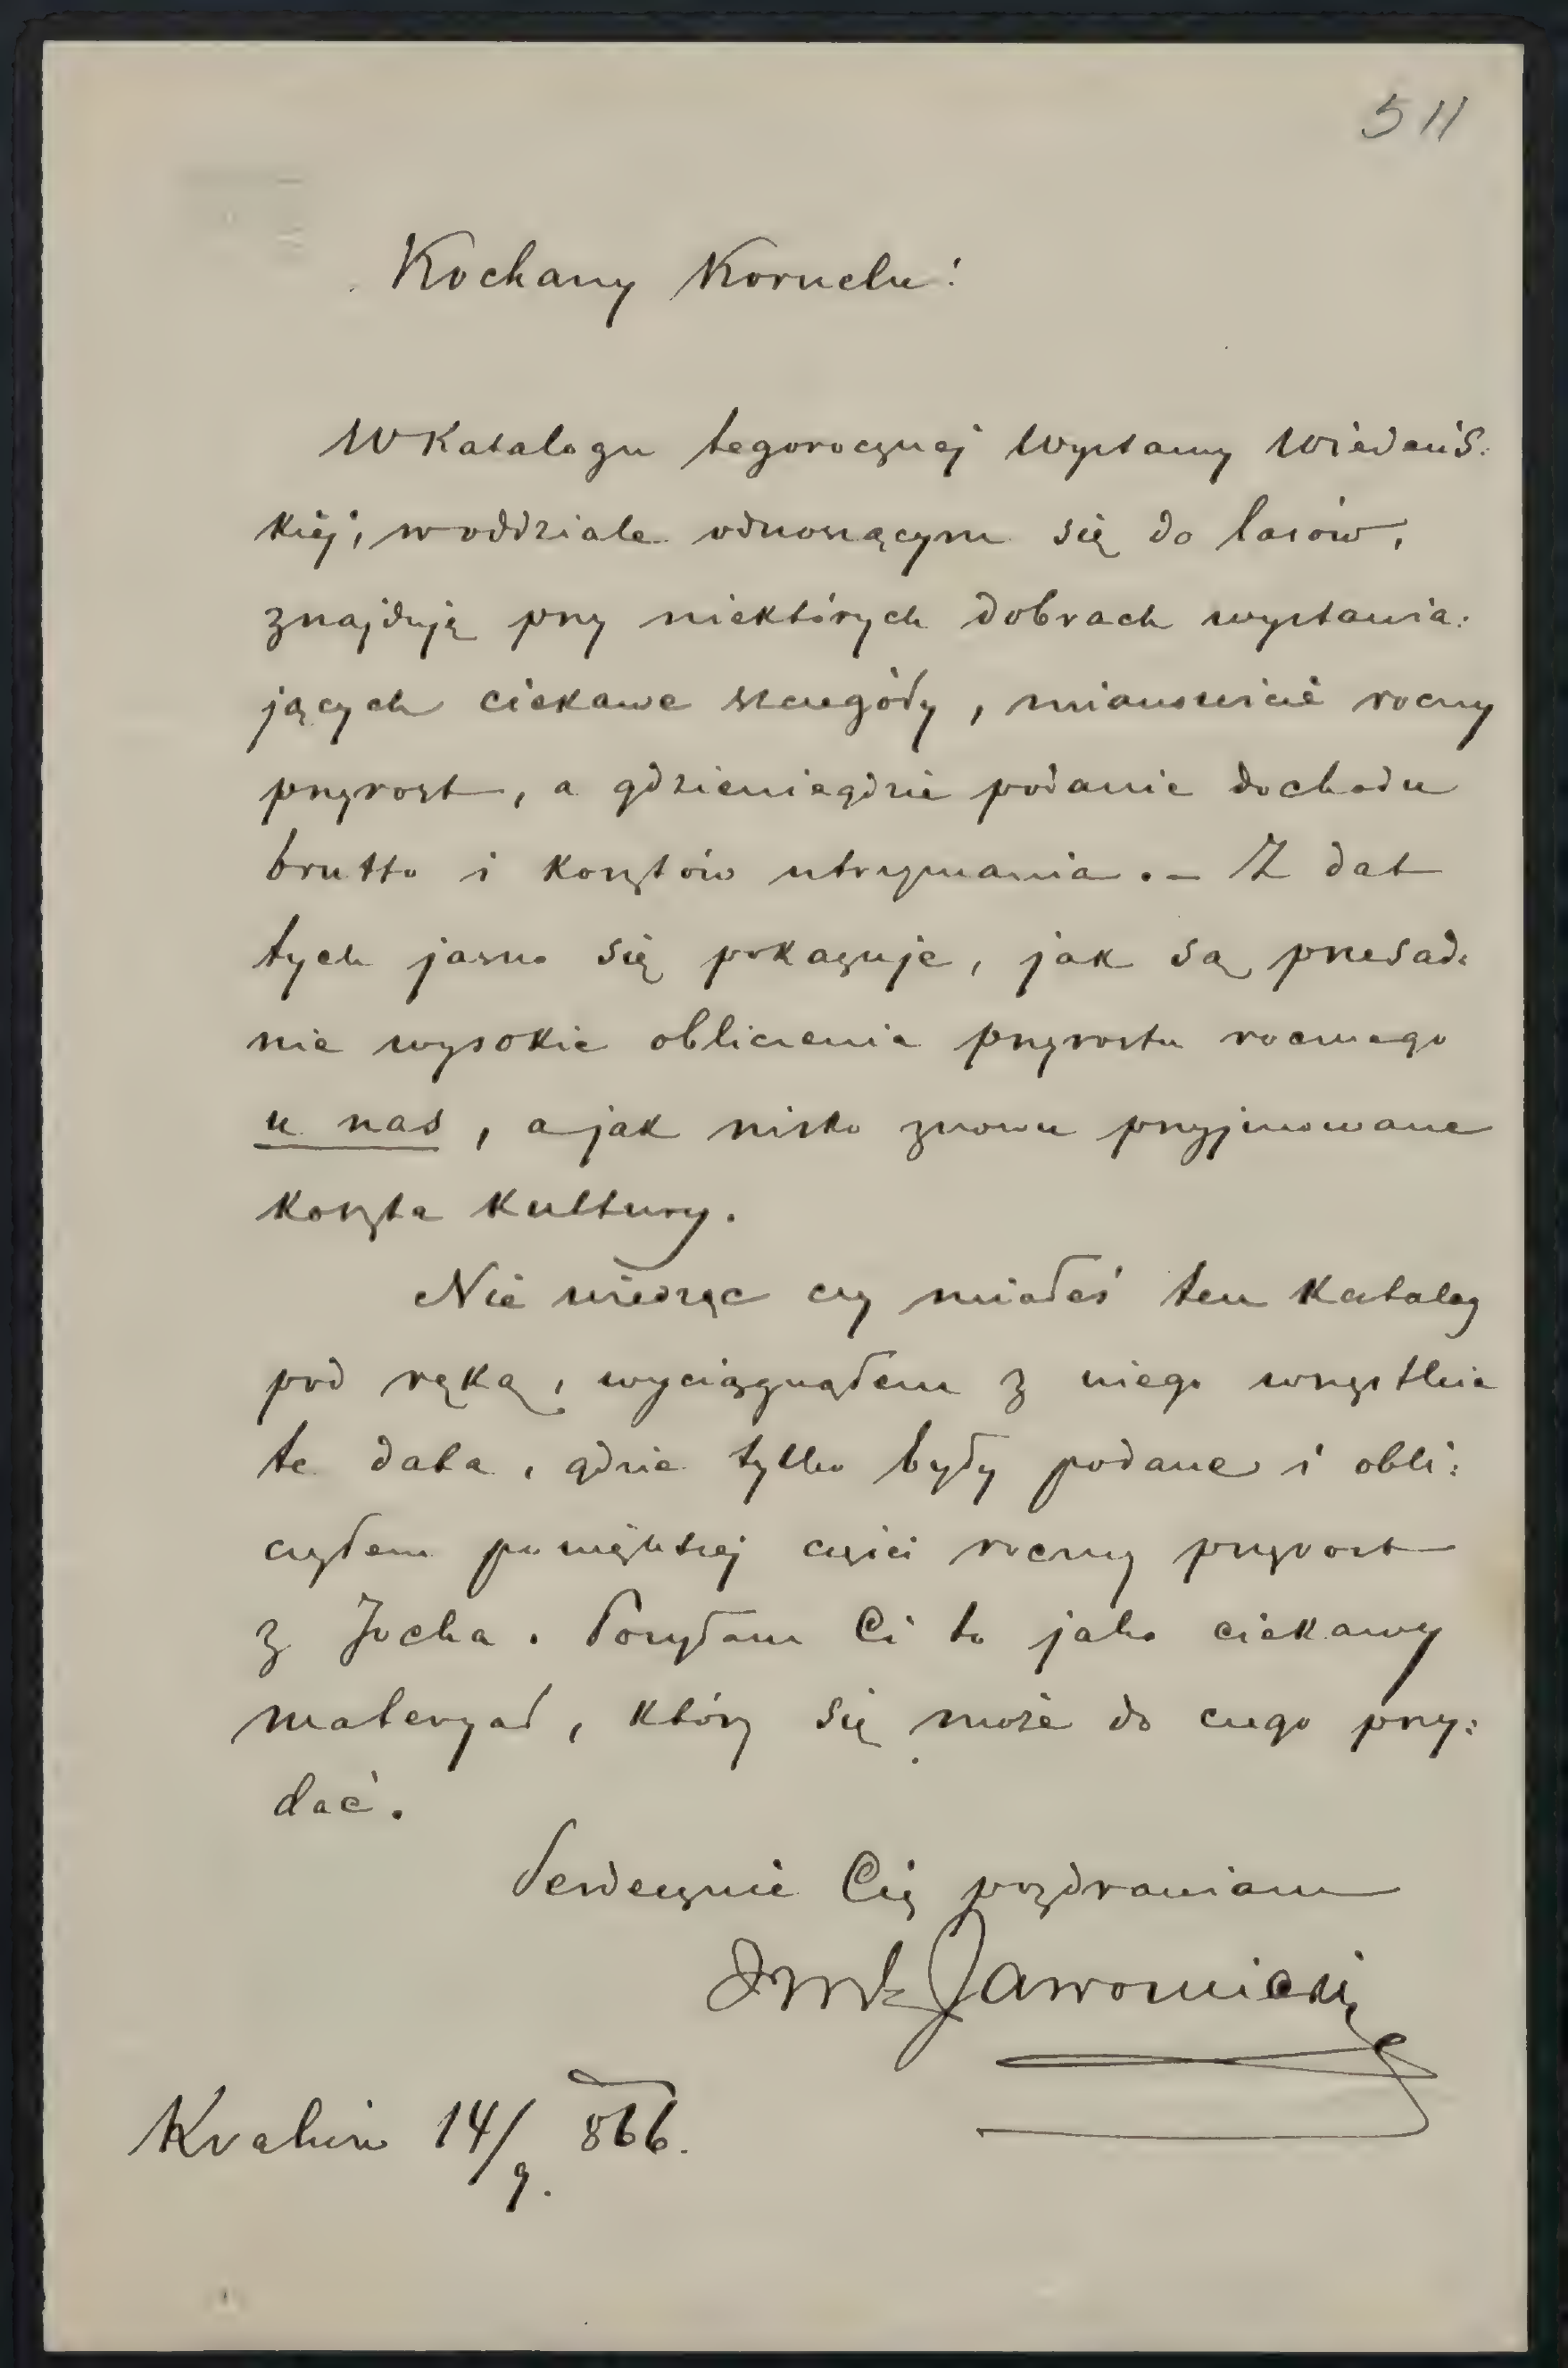 511
Kochany Kornelu!
W Katalogu tegorocznej Wystawy Wiedeńs:
kiej, w oddziale odnoszącym się do lasów,
znajdują przy niektórych dobrach wystawia:
jących ciekawe szczegóły, mianowicie roczny
przyrost, a gdzieniegdzie podanie dochodu
brutto i kosztów utrzymania. – Z dat
tych jasno się pokazuje, jak są przesad:
nie wysokie obliczenia przyrostu rocznego
u nas, a jak nisko znowu przyjmowane
koszta kultury.
Nie wiedząc czy miałeś ten Katalog
pod ręką, wyciągnąłem z niego wszystkie
te data, gdzie tylko były podane i obli:
czyłem po większej części roczny przyrost
z Jocha. Posyłam Ci to jako ciekawy
materyał, który się może do czego przy:
dać.
Serdecznie Cię pozdrawiam
Jawornicki
Kraków 14/9. 866.